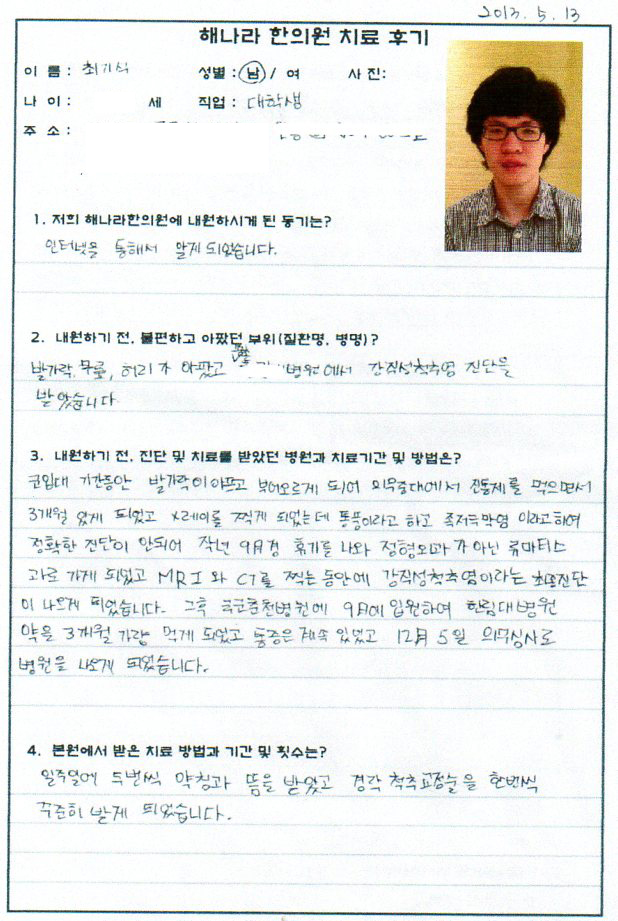 2013. 5. 13
해나라 한의원 치료 후기
이 름 : 최기식 성별 : 남 / 여 사 진:
나 이 : 세 직업 : 대학생
주 소 :
1. 저희 해나라한의원에 내원하시게 된 동기는?
인터넷을 통해서 알게 되었습니다.
2. 내원하기 전, 불편하고 아팠던 부위(질환명, 병명)?
발가락, 무릎, 허리가 아팠고 병원에서 강직성척추염 진단을
받았습니다
3. 내원하기 전, 진단 및 치료를 받았던 병원과 치료기간 및 방법은?
군입대 기간동안 발가락이 아프고 부어오르게 되어 의무대에서 진통제를 먹으면서
3개월 있게 되었고 X레이를 찍게 되었는데 통풍이라고 하고 족저극막염 이라고하여
정확한 진단이 안되어 작년 9月경 휴가를 나와 정형외과가 아닌 류마티스
과로 가게 되었고 MRI 와 CT를 찍는 동안에 강직성척추염이라는 최종진단
이 나오게 되었습니다. 그후 국군춘천병원에 9月에 입원하여 한림대병원
약을 3개월 가량 먹게 되었고 통증은 계속 있었고 12月 5일 의무심사로
병원을 나오게 되었습니다.
4. 본원에서 받은 치료 방법과 기간 및 횟수는?
일주일에 두번씩 약침과 뜸을 받았고 경락 척추교정술을 한번씩
꾸준히 받게 되었습니다.